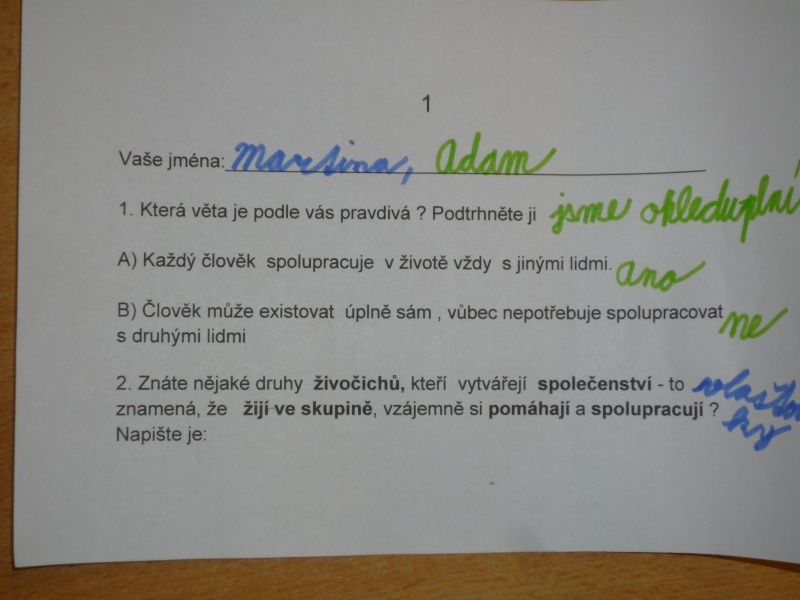 1
Vaše jména: Martina, Adam
1. Která věta je podle vás pravdivá ? Podtrhněte ji jsme ohleduplní
A) Každý člověk spolupracuje v životě vždy s jinými lidmi. ano
B) Člověk může existovat úplně sám , vůbec nepotřebuje spolupracovat ne
s druhými lidmi
2. Znáte nějaké druhy živočichů, kteří vytvářejí společenství - to vlaštov
znamená, že žijí ve skupině, vzájemně si pomáhají a spolupracují ? ky
Napište je: